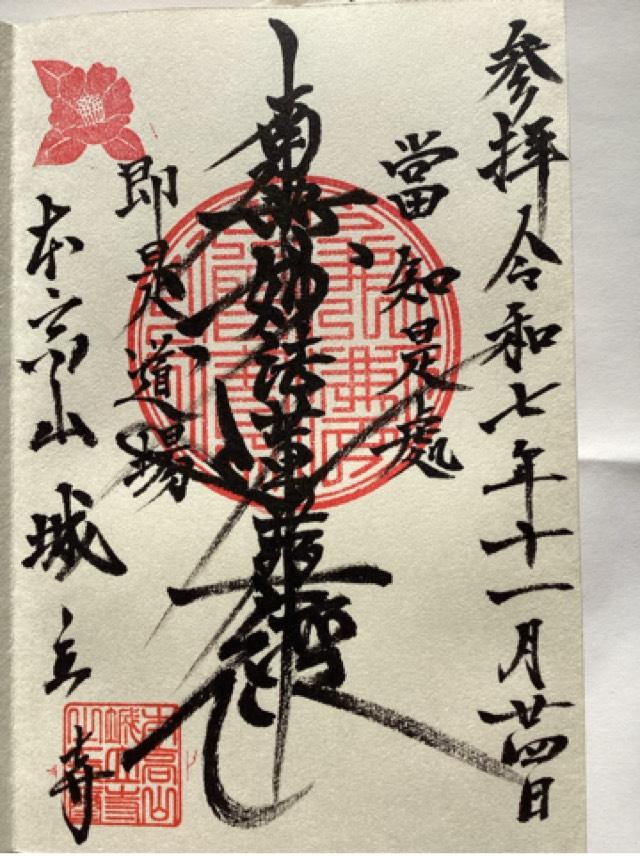 参拝 令和七年十一月廿四日
當知是處
南無妙法蓮華經
即是道場
本高山 城立寺